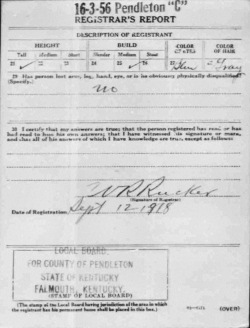 16-3-56 Pendleton "C"
REGISTRAR'S REPORT
DESCRIPTION OF REGISTRANT
HEIGHT BUILD COLOR OF EYES COLOR OF HAIR
Tall Medium Short Slender Medium Stout
21 22 23 24 25 26 27 28 Gray
29 Has person lost arm, leg, hand, eye, or is he obviously physically disqualified?
(Specify.)
No
30 I certify that my answers are true; that the person registered has read or has
had read to him his own answers; that I have witnessed his signature or mark,
and that all of his answers of which I have knowledge are true, except as follows:
W R Rucker
(Signature of Registrar)
Date of Registration Sept 12-1918
LOCAL BOARD
FOR COUNTY OF PENDLETON
STATE OF KENTUCKY
FALMOUTH, KENTUCKY.
(STAMP OF LOCAL BOARD)
(The stamp of the Local Board having jurisdiction of the area in which
the registrant has his permanent home shall be placed in this box.)
(OVER)